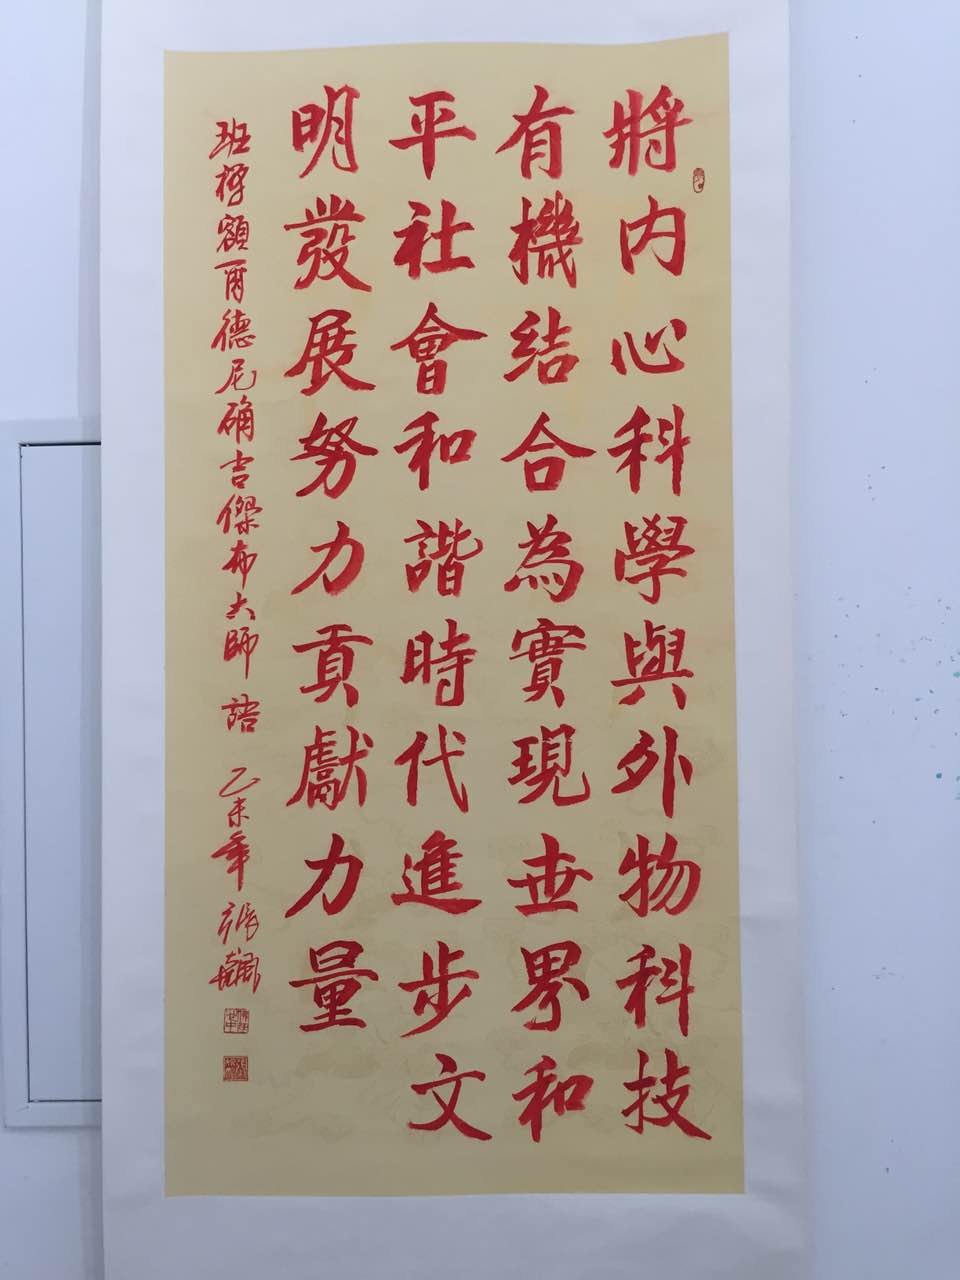 將內心科學與外物科技
有機結合為實現世界和
平社會和諧時代進步文
明發展努力貢獻力量
班禪額爾德尼確吉傑布大師語 乙未年 張飆